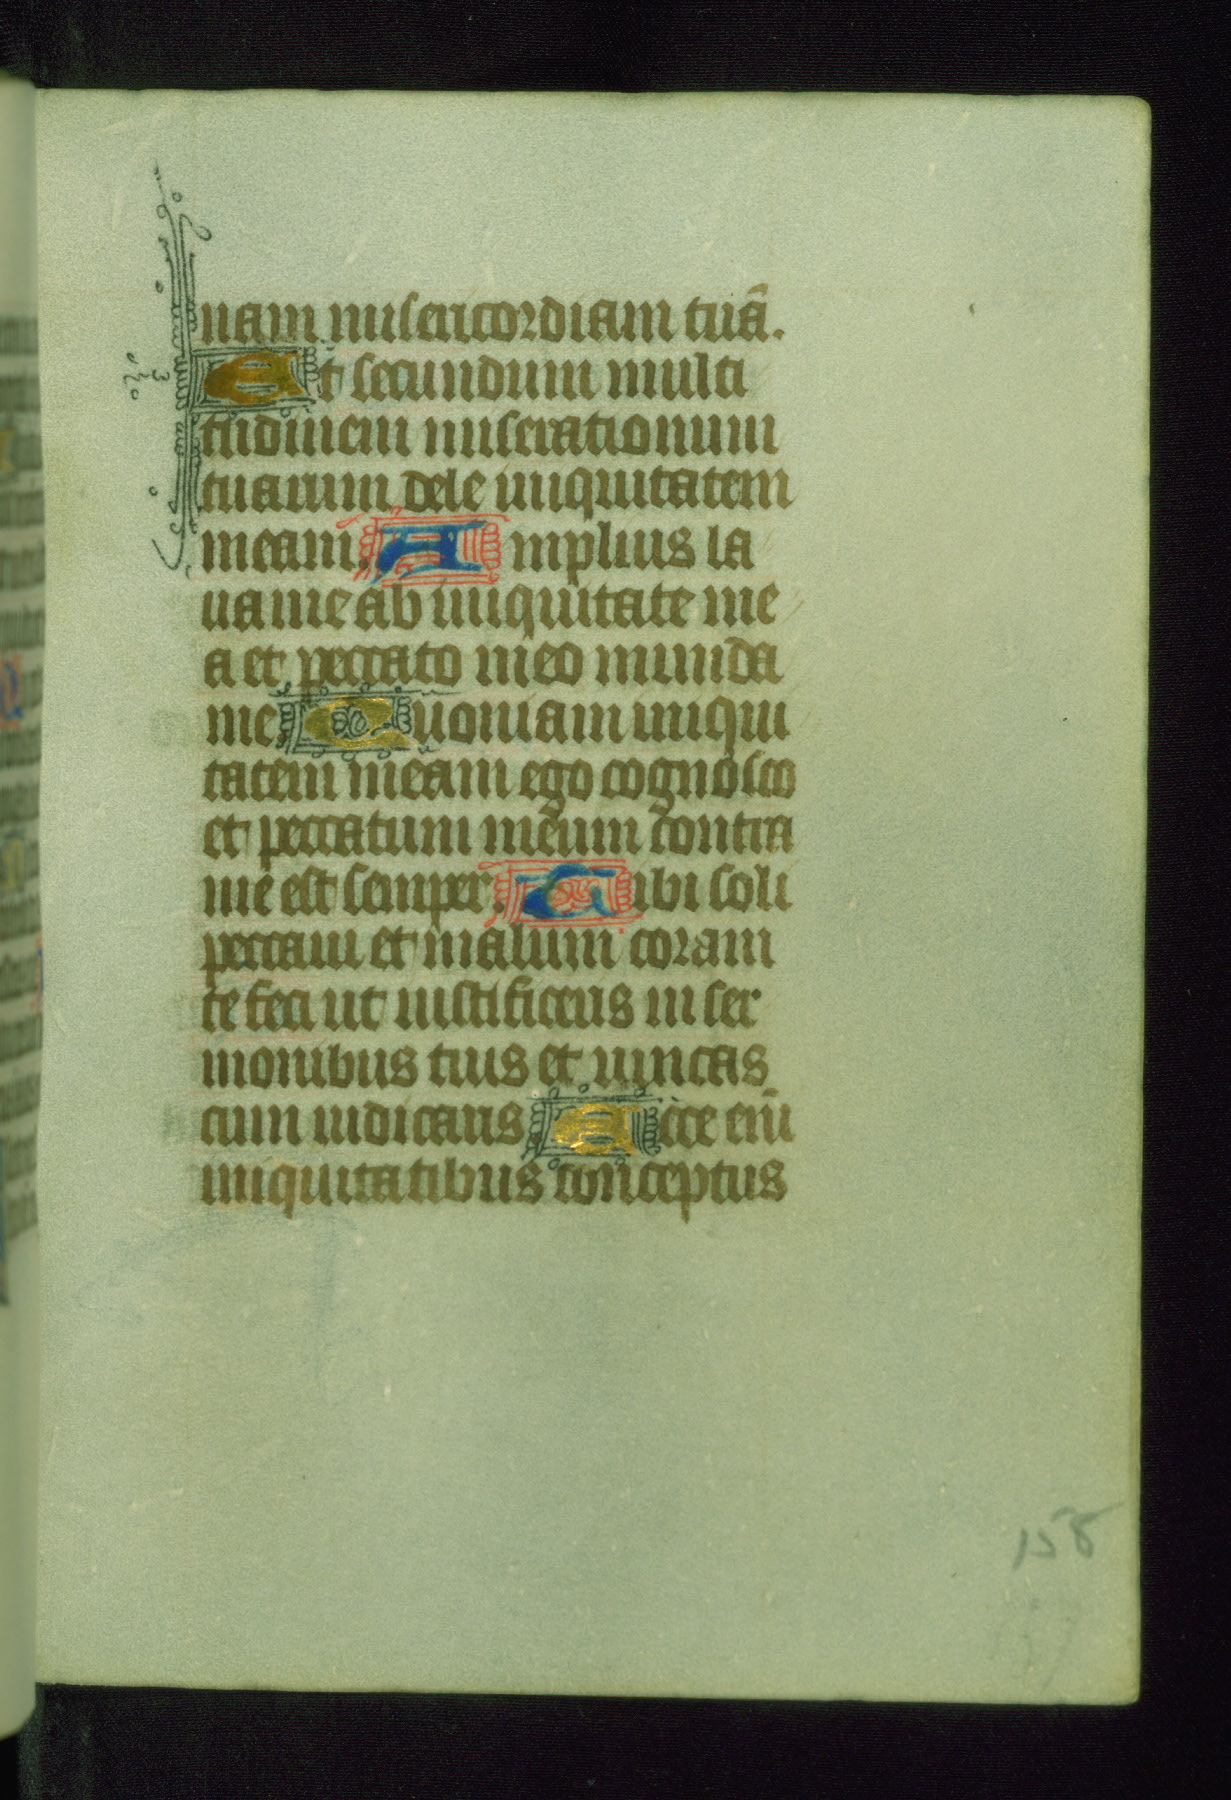 nam misericordiam tuã.
Et secundum multi
tudinem miserationum
tuarum dele iniquitatem
meam. Amplius la
ua me ab iniquitate me
a et peccato meo munda
me Quoniam iniqui
tatem meam ego cognosco
et peccatum meum contra
me est semper. Tibi soli
peccaui et malum coram
te feci ut iustificeris in ser
monibus tuis et uincas
cum iudicaris Ecce eni̅
iniquitatibus conceptus
158